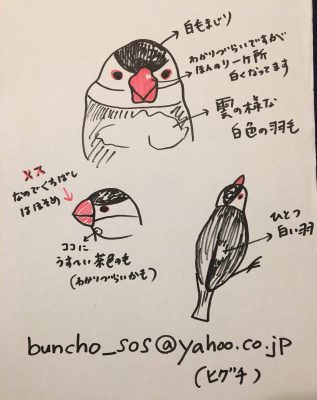 白毛まじり
わかりづらいですが
ほんの1〜2ヶ所
白くなってます
雲の様な
白色の羽毛
メス
なのでくちばし
はほそめ
ココに
うすーい茶色の毛
(わかりづらいかも)
ひとつ
白い羽
buncho_sos@yahoo.co.jp
(ヒグチ)